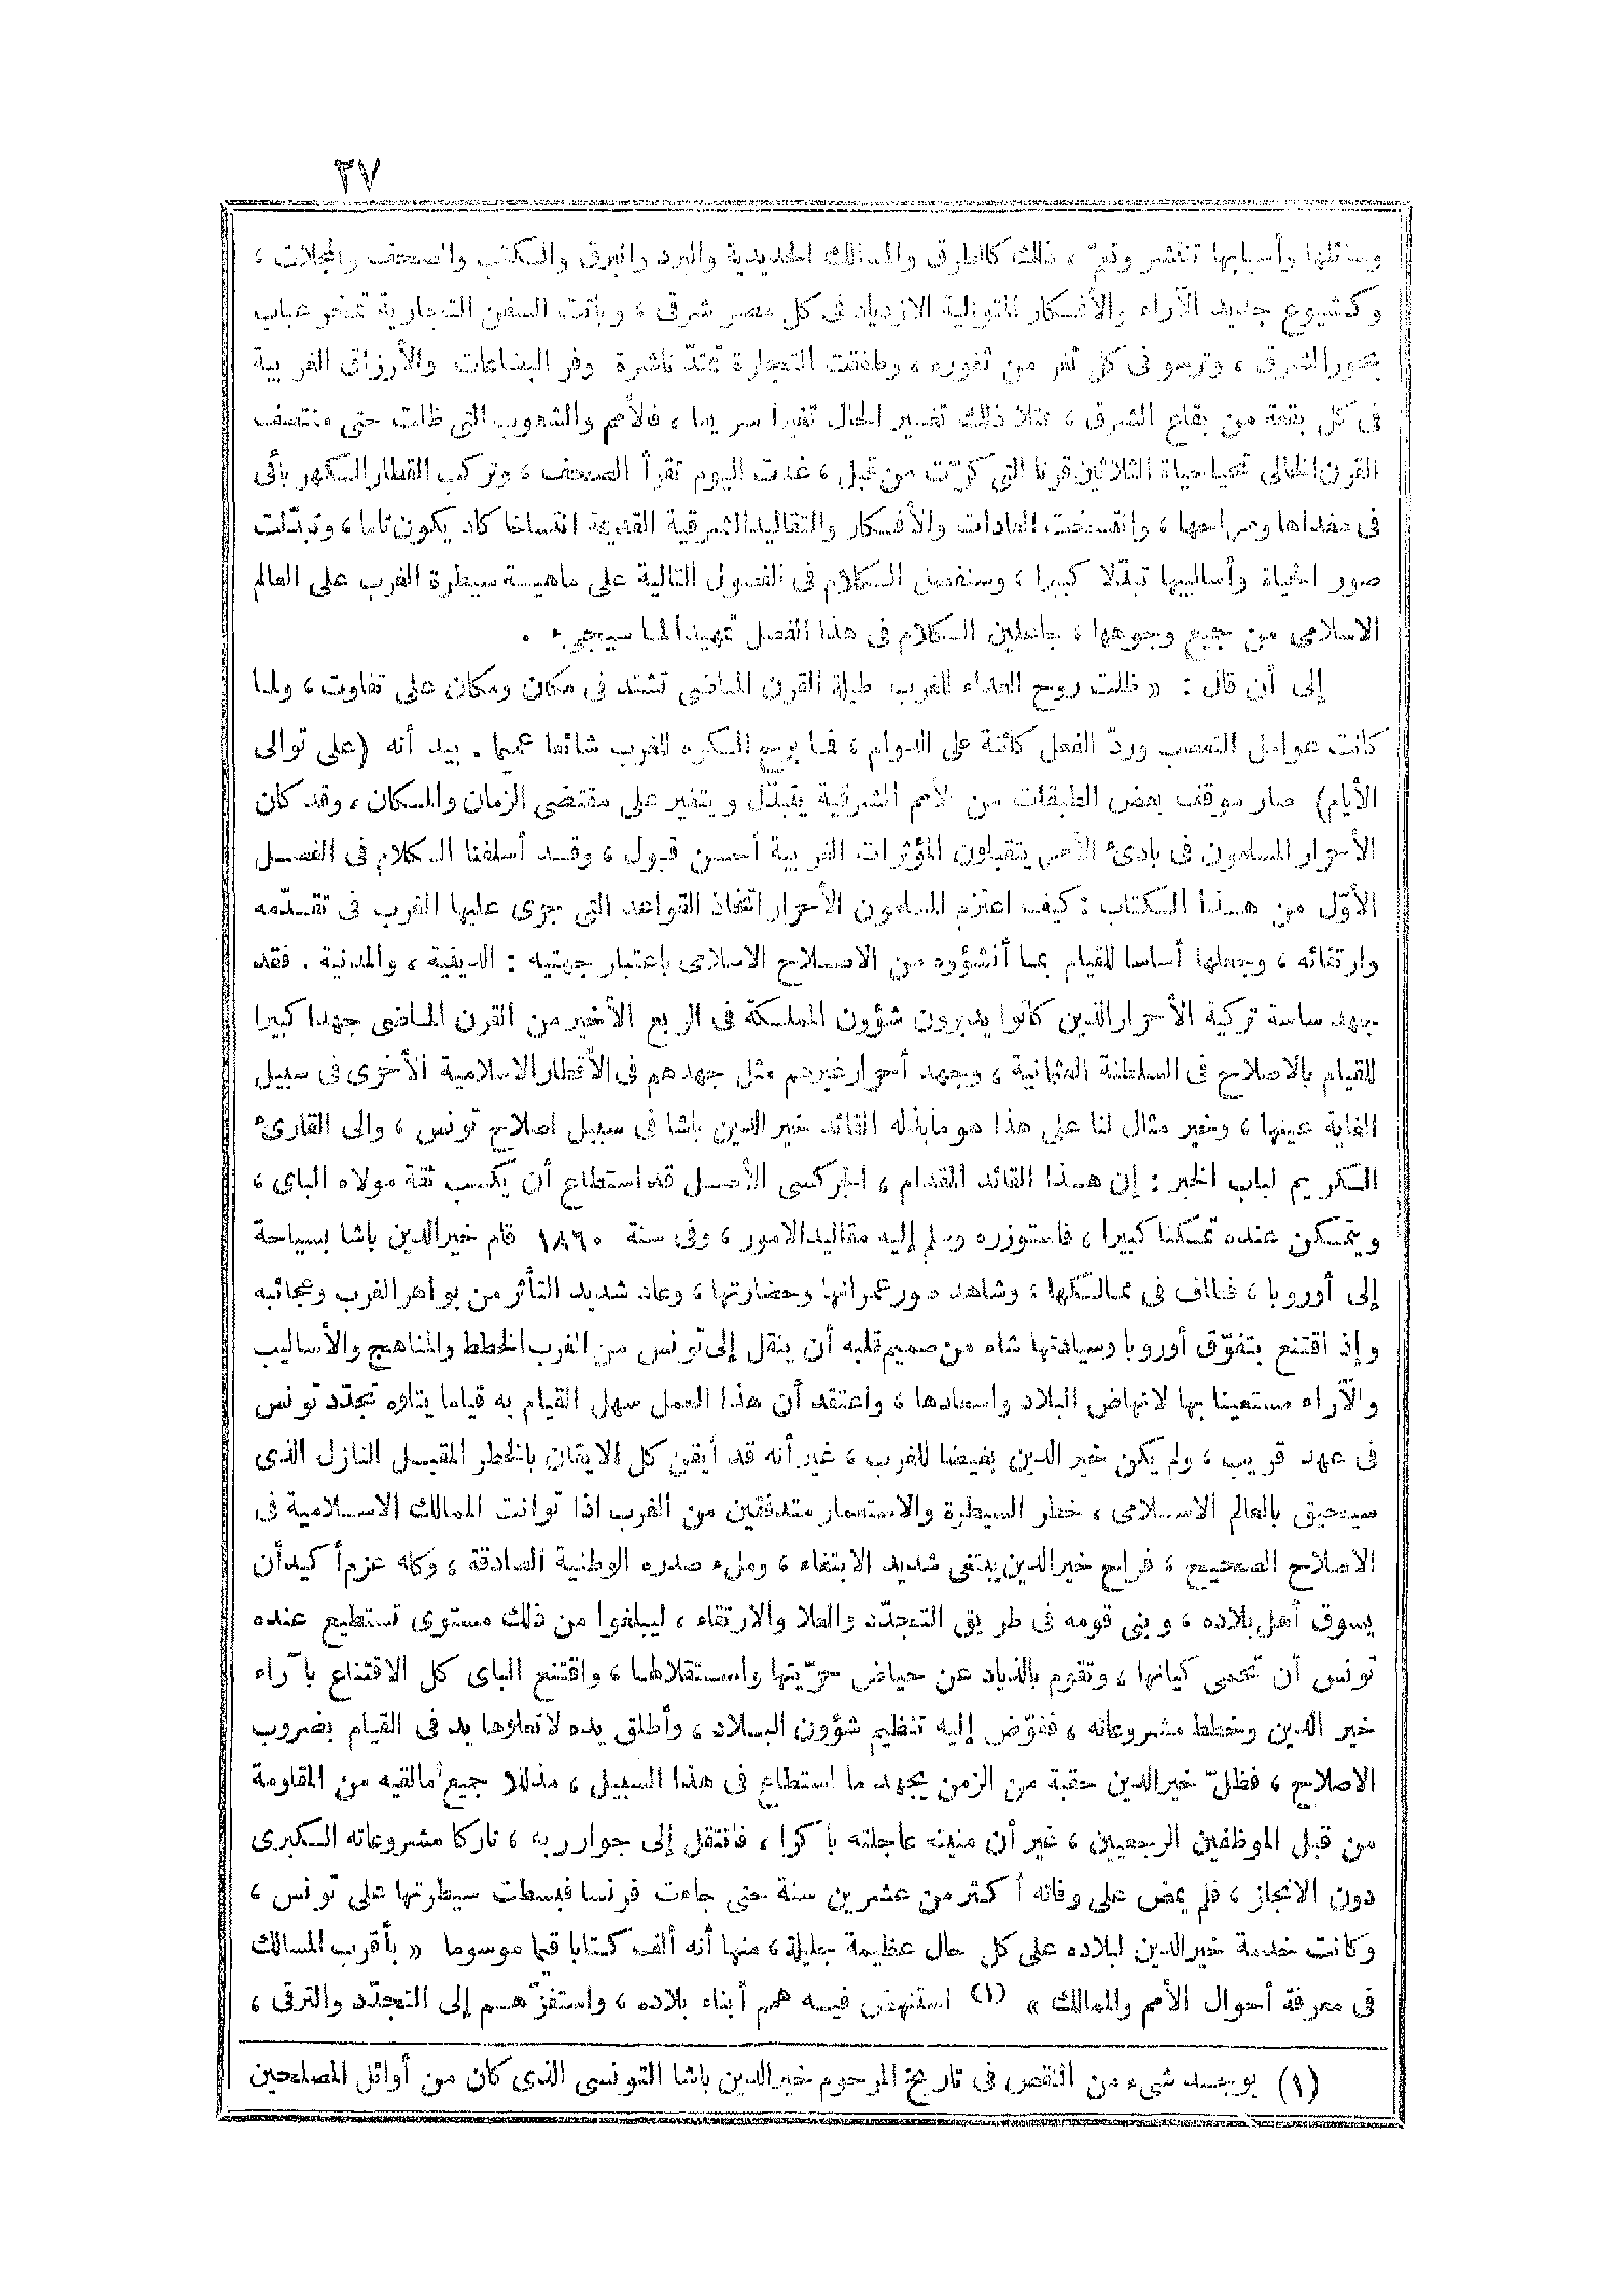 ٣٧
وسائلها وأسبابها تنتشر وتعمّ ، ذلك كالطرق والمسالك الحديدية والبرد والبرق والكتب والصحف والمجلات ،
وكشيوع جديد الآراء والأفكار المتوالية الازدياد فى كل مصر شرقى ، وباتت السفن التجارية تمخر عباب
بحور الشرق ، وترسو فى كل ثغر من ثغوره ، وطفقت التجارة تمتدّ ناشرة وفر البضاعات والأرزاق الغربية
فى كل بقعة من بقاع الشرق ، فتلا ذلك تغيير الحال تغيرا سريعا ، فالأمم والشعوب التى ظلت حتى منتصف
القرن الخالى تحيا حياة الثلاثين قرنا التى كرّت من قبل ، غدت اليوم تقرأ الصحف ، وتركب القطار المكهربائى
فى مغداها ومراحها ، وانفسخت العادات والأفكار والتقاليد الشرقية القديمة انفساخا كاد يكون تاما ، وتبدّلت
صور الحياة وأساليبها تبدّلا كبيرا ، وسنفصل الكلام فى الفصول التالية على ماهية سيطرة الغرب على العالم
الاسلامى من جميع وجوهها ، جاعلين الكلام فى هذا الفصل تمهيدا لما سيجىء .
إلى أن قال : « ظلت روح العداء للغرب طيلة القرن الماضى تشتد فى مكان ومكان على تفاوت ، ولما
كانت عوامل التعصب وردّ الفعل كائنة على الدوام ، فما برح الكره للغرب شائعا عميما . بيد أنه (على توالى
الأيام) صار موقف بعض الطبقات من الأمم الشرقية يتبدّل ويتغير على مقتضى الزمان والمكان ، وقد كان
الأحرار المسلمون فى بادئ الأمر يتقبلون المؤثرات الغربية أحسن قبول ، وقد أسلفنا الكلام فى الفصل
الأوّل من هذا الكتاب : كيف اعتزم المسلمون الأحرار اتخاذ القواعد التى جرى عليها الغرب فى تقدّمه
وارتقائه ، وجعلها أساسا للقيام بما أنشؤوه من الاصلاح الاسلامى باعتبار جهتيه : الدينية ، والمدنية . فقد
جهد ساسة تركية الأحرار الذين كانوا يديرون شؤون المملكة فى الربع الأخير من القرن الماضى جهدا كبيرا
للقيام بالاصلاح فى السلطنة العثمانية ، وجهد أحرار غيرهم مثل جهدهم فى الأقطار الاسلامية الأخرى فى سبيل
الغاية عينها ، وخير مثال لنا على هذا هو ما بذله القائد خير الدين باشا فى سبيل اصلاح تونس ، والى القارئ
الكريم لباب الخبر : إن هذا القائد المقدام ، الجركسى الأصل قد استطاع أن يكسب ثقة مولاه الباى ،
ويتمكن عنده تمكنا كبيرا ، فاستوزره وسلم إليه مقاليد الامور ، وفى سنة ١٨٦٠ قام خير الدين باشا بسياحة
إلى أوروبا ، فطاف فى ممالكها ، وشاهد صور عمرانها وحضارتها ، وعاد شديد التأثر من بواهر الغرب وعجائبه
وإذ اقتنع بتفوّق أوروبا وسيادتها شاء من صميم قلبه أن ينقل إلى تونس من الغرب الخطط والمناهج والأساليب
والآراء مستعينا بها لانهاض البلاد واسعادها ، واعتقد أن هذا العمل سهل القيام به قياما يتلوه تجدّد تونس
فى عهد قريب ، ولم يكن خير الدين بغيضا للغرب ، غير أنه قد أيقن كل الايقان بالخطر المقبل النازل الذى
سيحيق بالعالم الاسلامى ، خطر السيطرة والاستعمار متدفقين من الغرب اذا توانت الممالك الاسلامية فى
الاصلاح الصحيح ، فراح خير الدين يبتغى شديد الابتغاء ، وملء صدره الوطنية الصادقة ، وكله عزم أكيد أن
يسوق أهل بلاده ، وبنى قومه فى طريق التجدّد والعلا والارتقاء ، ليبلغوا من ذلك مستوى تستطيع عنده
تونس أن تحمى كيانها ، وتقوم بالذياد عن حياض حرّيتها واستقلالها ، واقتنع الباى كل الاقتناع بآراء
خير الدين وخطط مشروعاته ، ففوّض إليه تنظيم شؤون البلاد ، وأطلق يده لا تعلوها يد فى القيام بضروب
الاصلاح ، فظلّ خير الدين حقبة من الزمن يجهد ما استطاع فى هذا السبيل ، مذللا جميع مالقيه من المقاومة
من قبل الموظفين الرجعيين ، غير أن منيته عاجلته باكرا ، فانتقل إلى جوار ربه ، تاركا مشروعاته الكبرى
دون الانجاز ، فلم يمض على وفاته أكثر من عشرين سنة حتى جاءت فرنسا فبسطت سيطرتها على تونس ،
وكانت خدمة خير الدين لبلاده على كل حال عظيمة جليلة ، منها أنه ألف كتابا قيما موسوما « بأقرب المسالك
فى معرفة أحوال الأمم والممالك » (١) استنهض فيه همم أبناء بلاده ، واستفزّهم إلى التجدّد والترقى ،
(١) يوجد شىء من النقص فى تاريخ المرحوم خير الدين باشا التونسى الذى كان من أوائل المصلحين